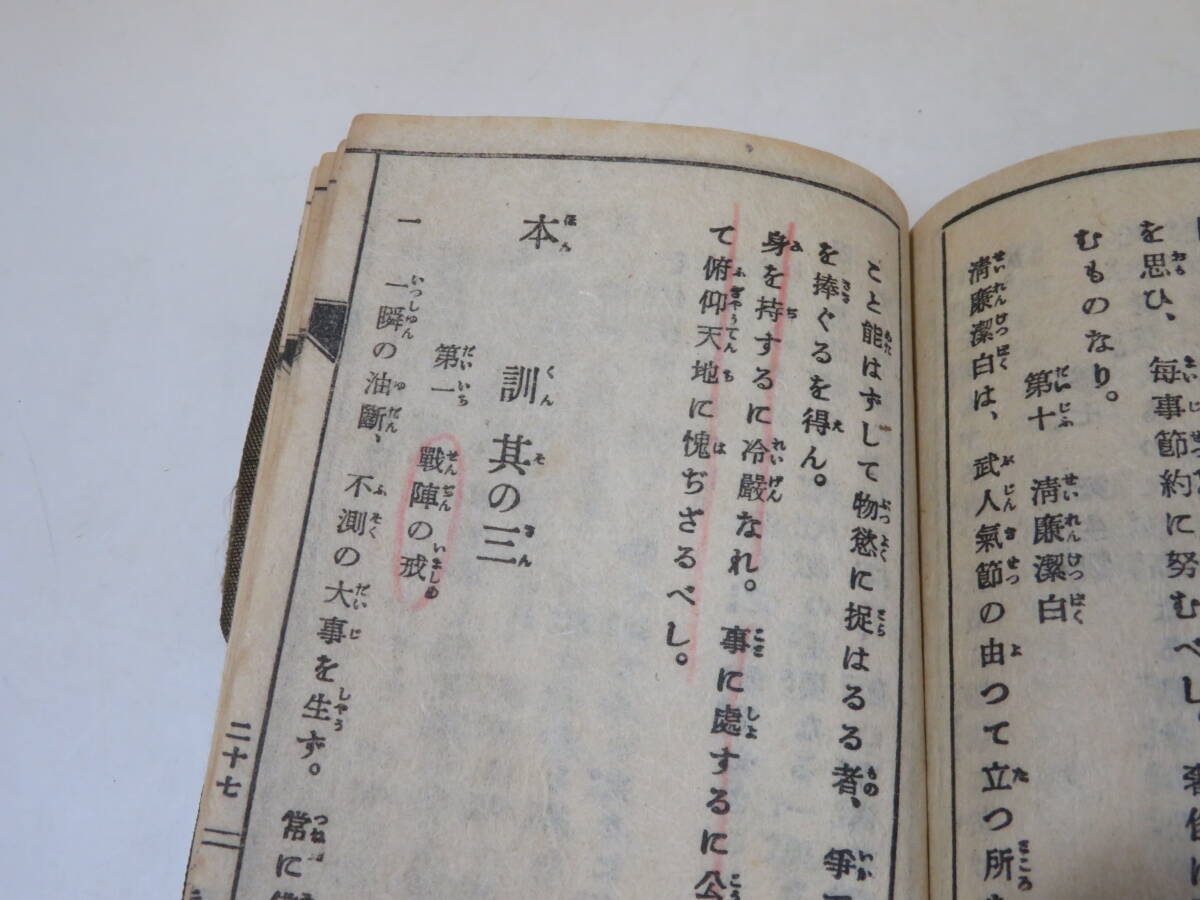 を思ひ、毎事節約に努むべし。奢侈は
むものなり。
第十 清廉潔白
清廉潔白は、武人氣節の由つて立つ所
こと能はずして物慾に捉はるる者、爭
を捧ぐるを得ん。
身を持するに冷嚴なれ。事に處するに公
て俯仰天地に愧ぢざるべし。
本訓 其の三
第一 戰陣の戒
一 一瞬の油斷、不測の大事を生ず。常に
二十七